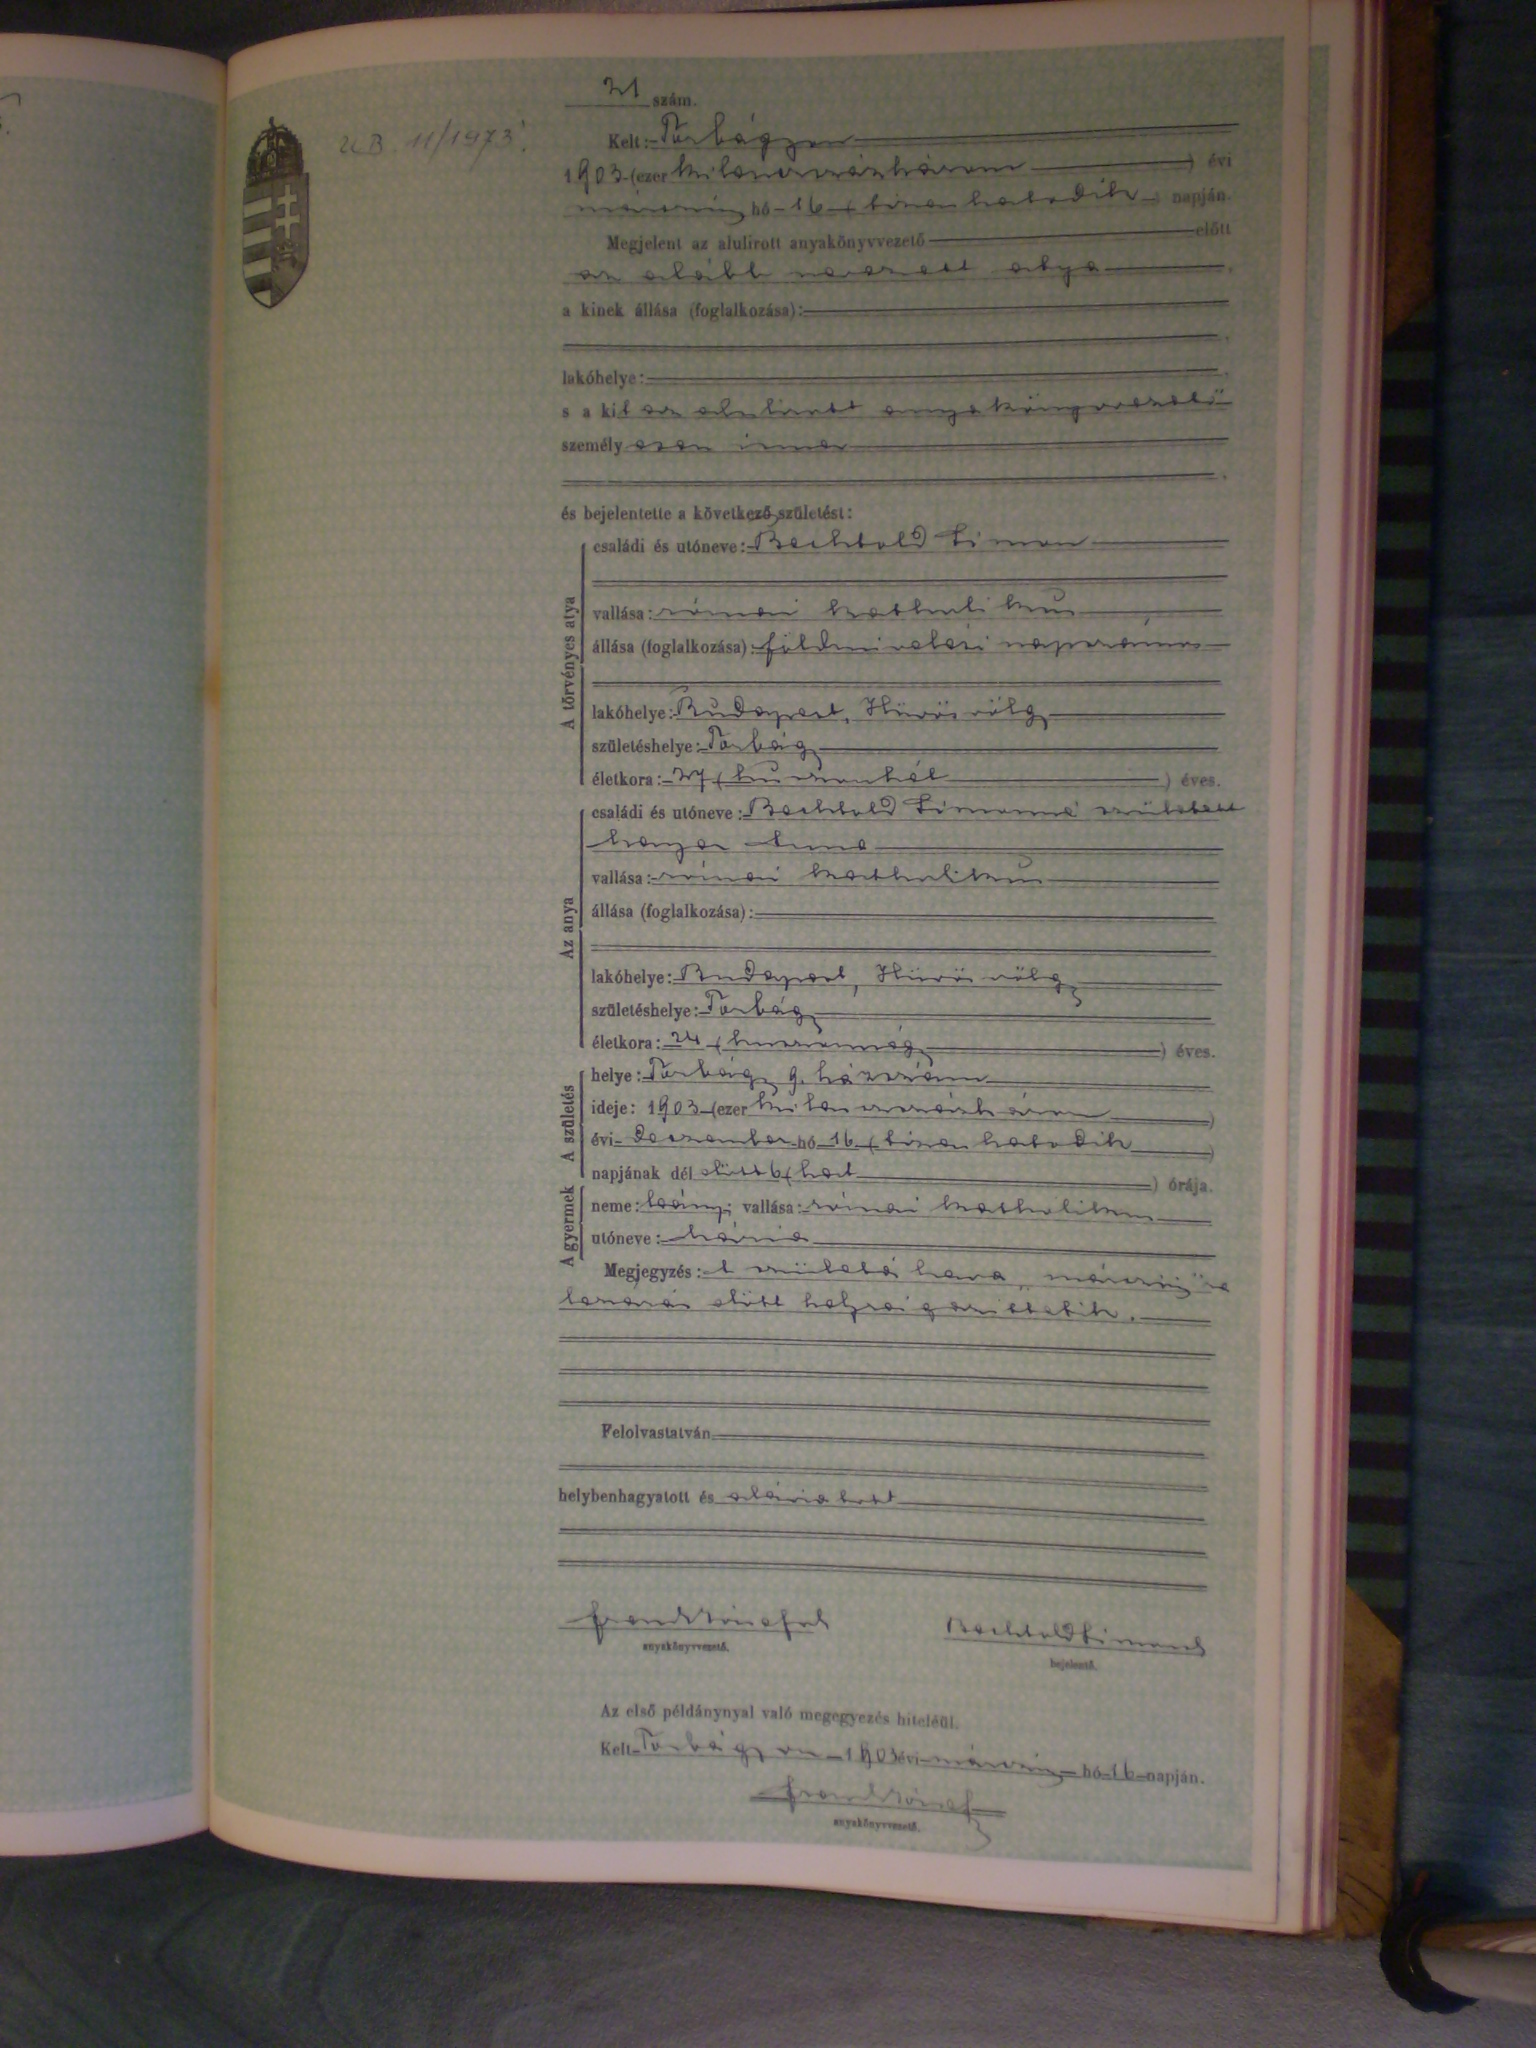 21 szám.
U.B. 11/1973.
Kelt: Torbágyon
1903 (ezer kilenczszázhárom) évi
márczius hó 16 (tizenhatodik) napján.
Megjelent az alulirott anyakönyvvezető előtt
az alább nevezett atya
a kinek állása (foglalkozása):
lakóhelye:
s a kit az alulirott anyakönyvvezető
személyesen ismer
és bejelentette a következő születést:
A törvényes atya
családi és utóneve: Bechtold Simon
vallása: római katholikus
állása (foglalkozása): földmivelési napszámos
lakóhelye: Budapest, Hűvösvölgy
születéshelye: Torbágy
életkora: 27 (huszonhét) éves.
Az anya
családi és utóneve: Bechtold Simonné született
Anna
vallása: római katholikus
állása (foglalkozása):
lakóhelye: Budapest, Hűvösvölgy
születéshelye: Torbágy
életkora: 24 (huszonnégy) éves.
A születés
helye: Torbágy 9. házszám
ideje: 1903 (ezer kilenczszázhárom)
évi deczember hó 16 (tizenhatodik)
napjának dél előtt 6 (hat) órája.
A gyermek
neme: leány; vallása: római katholikus
utóneve: Mária
Megjegyzés: A születés hava „márczius"ra
lezárás előtt helyreigazittatik.
Felolvastatván
helybenhagyatott és aláiratott
Frank József
anyakönyvvezető.
Bechtold Simon
bejelentő.
Az első példánynyal való megegyezés hiteléül.
Kelt Torbágyon 1903 évi márczius hó 16 napján.
Frank József
anyakönyvvezető.